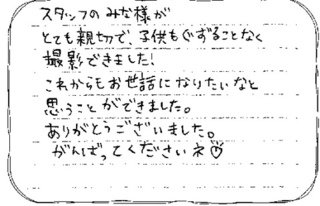 スタッフのみな様が
とても親切で、子供もぐずることなく
撮影できました!
これからもお世話になりたいなと
思うことができました。
ありがとうございました。
がんばってくださいネ